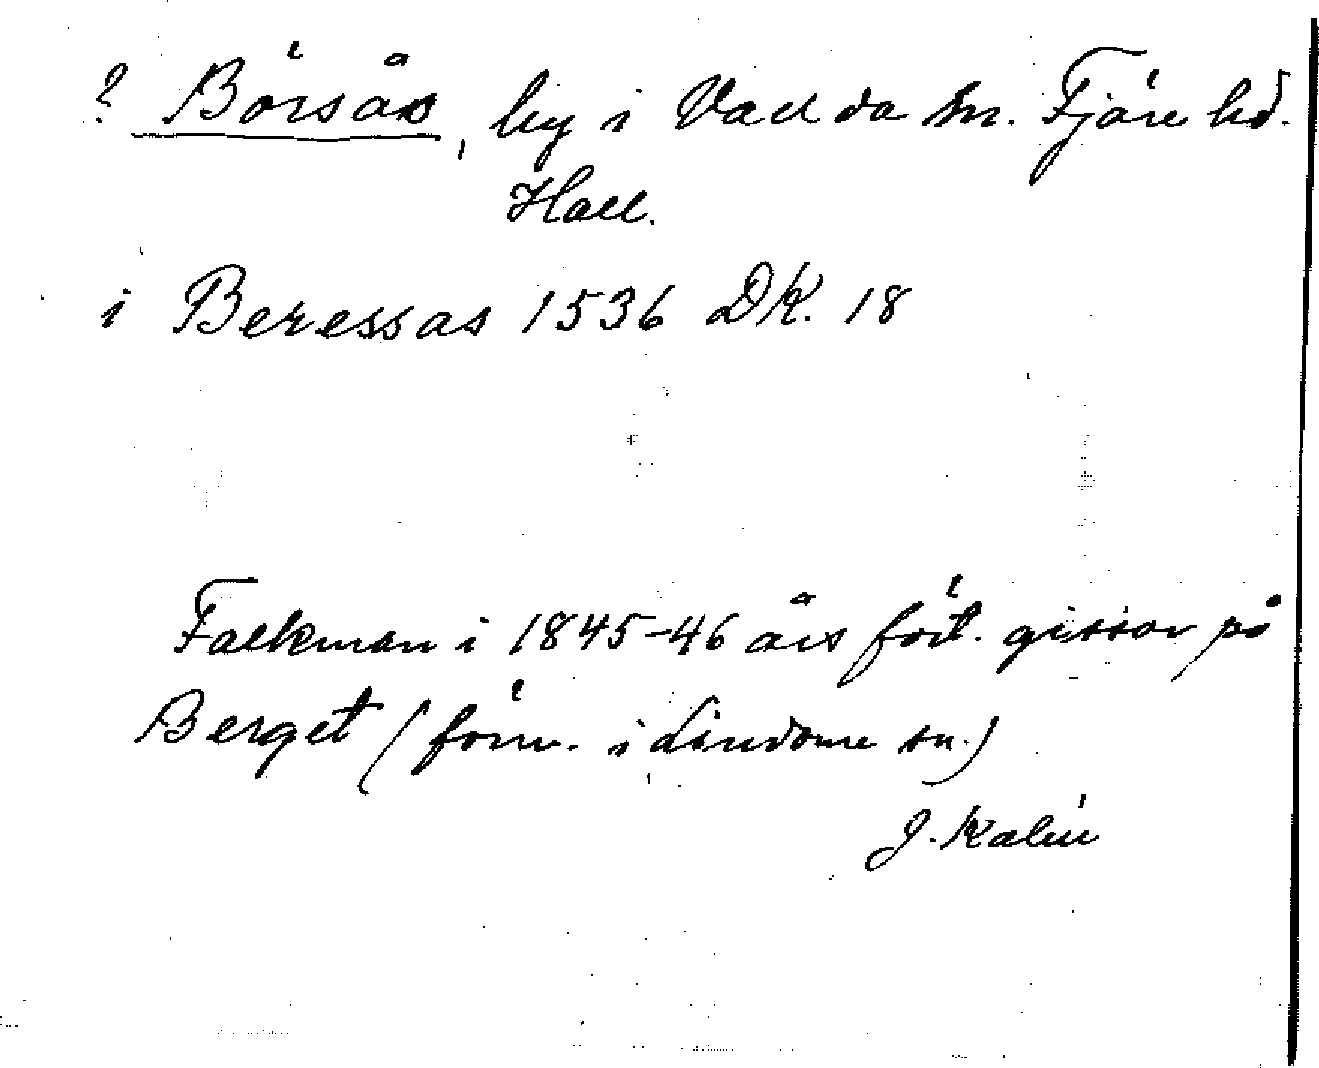 ? Börsås, by i Vallda sn. Fjäre hd.
Hall.
i Beressas 1536 DK. 18
Falkman i 1845-46 års fört. gissar på
Berget (förr. i Lindome sn.)
J. Kalén